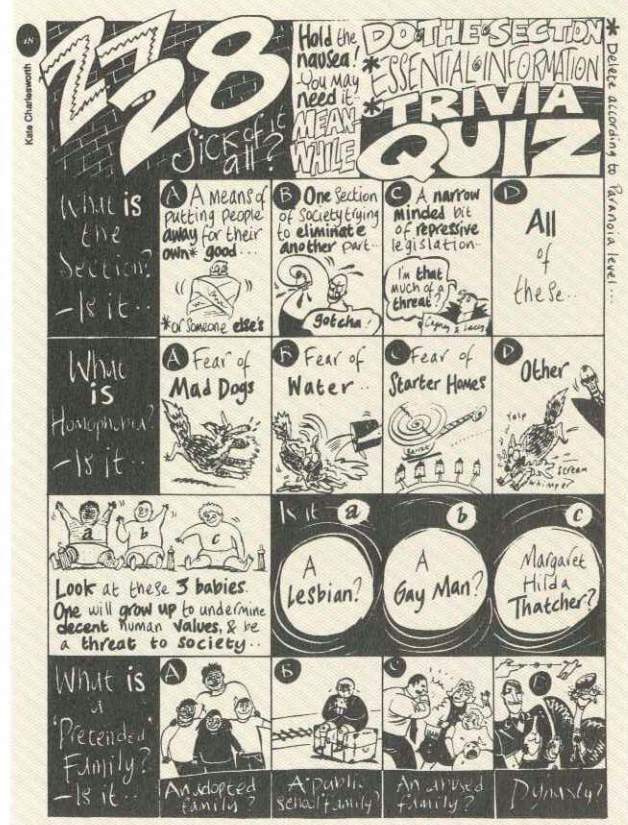 18
Kate Charlesworth
27
28
Sick of it
all?
Hold the
nausea!
You may
need it..
MEAN
WHILE
DO•THE•SECTION
*ESSENTIAL•INFORMATION
*TRIVIA
QUIZ
* Delete according to Paranoia level...
What is
the
Section?
- Is it..
A A Means of
putting people
away for their
own* good...
*or someone else's
B One Section
of Society trying
to eliminate
another part..
gotcha!
C A narrow
minded bit
of repressive
legislation..
I'm that
much of a
threat?
Cagney & Lacey
D
All
of
these..
What
is
Homophobia?
- Is it..
A Fear of
Mad Dogs
B Fear of
Water..
C Fear of
Starter Homes
D Other
Yelp
Scream
whimper
a
b
c
Look at these 3 babies.
One will grow up to undermine
decent human values, & be
a threat to society..
Is it
a
A
Lesbian?
b
A
Gay Man?
c
Margaret
Hilda
Thatcher?
What is
a
'Pretended'
Family?
- Is it..
A
An adopted
family?
B
A 'public
school' family?
C
An abused
family?
Dynasty?